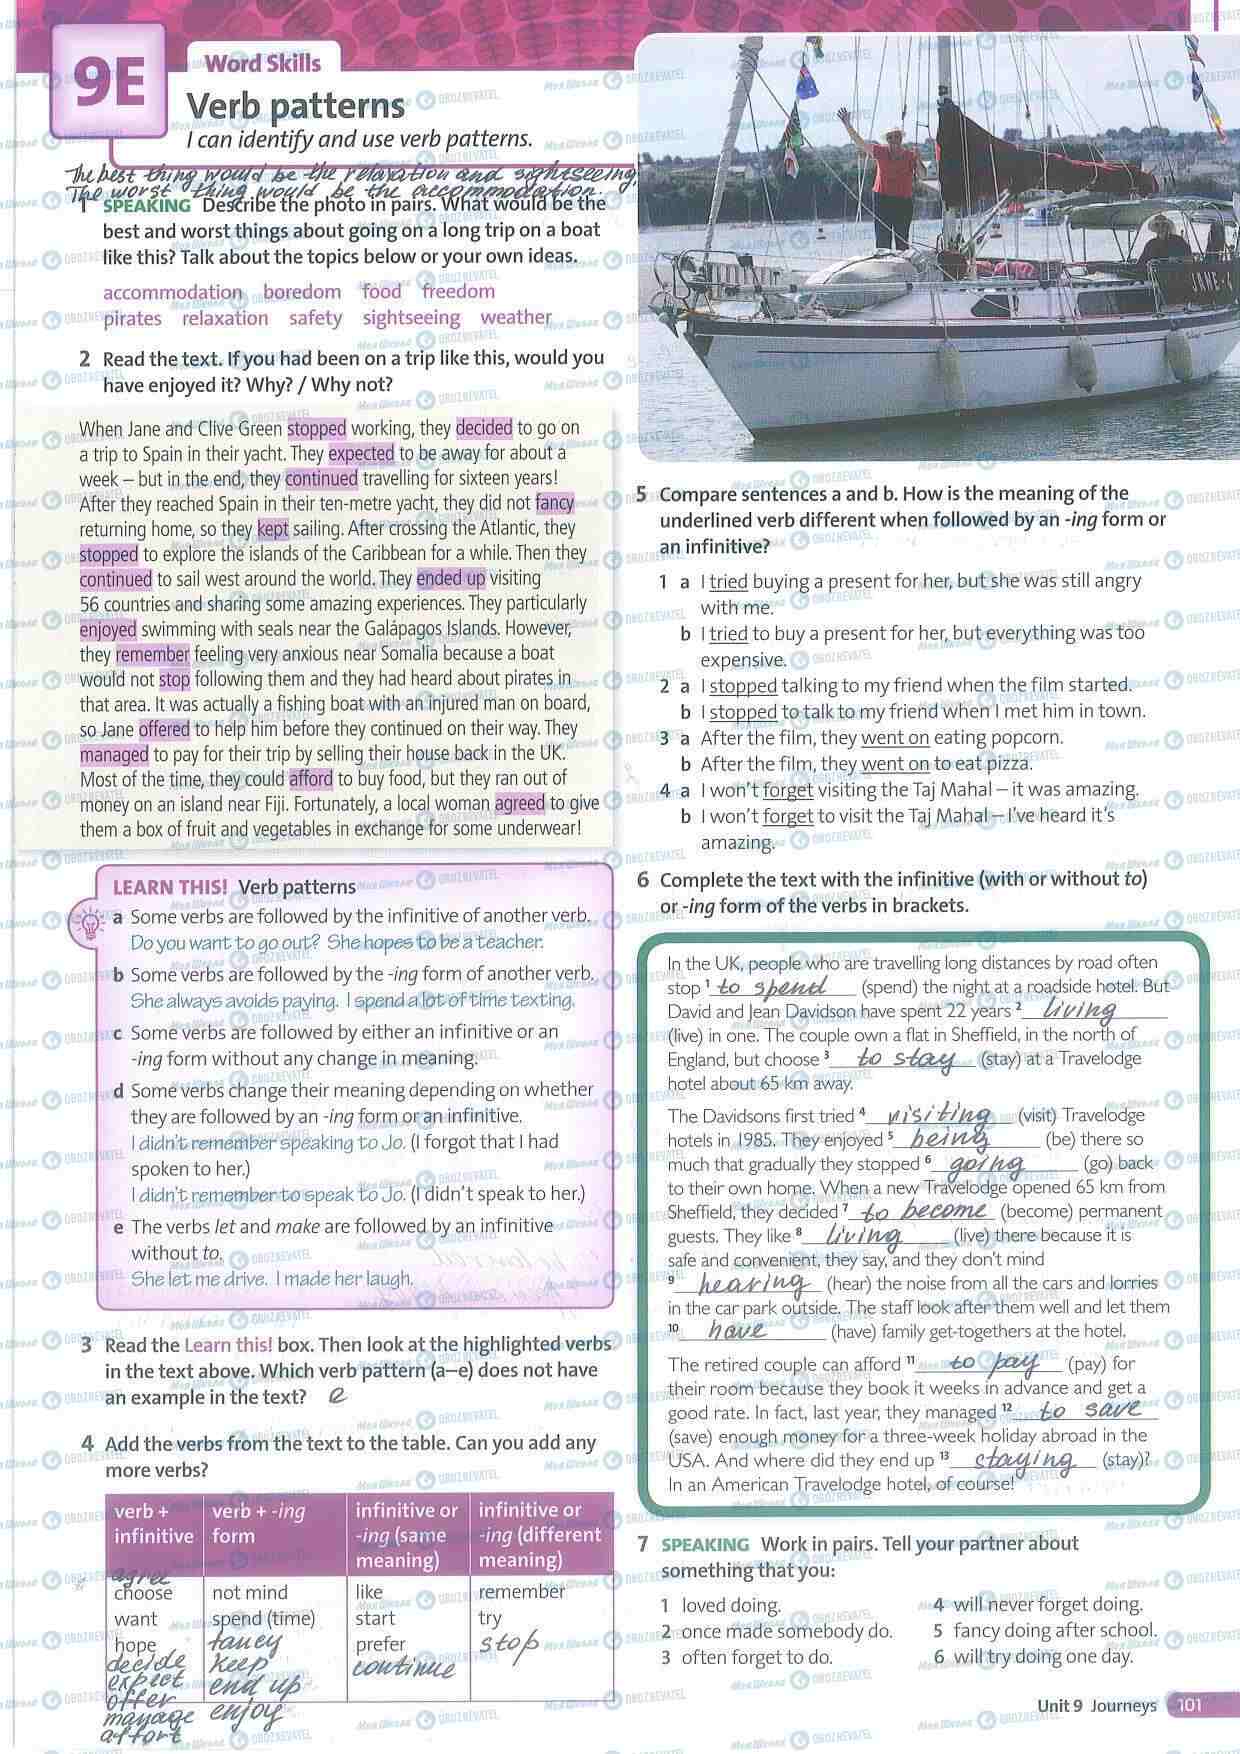 9E
Word Skills
Verb patterns
I can identify and use verb patterns.
The best thing would be the relaxation and sightseeing,
The worst thing would be the accommodation.
1 SPEAKING Describe the photo in pairs. What would be the
best and worst things about going on a long trip on a boat
like this? Talk about the topics below or your own ideas.
accommodation boredom food freedom
pirates relaxation safety sightseeing weather
2 Read the text. If you had been on a trip like this, would you
have enjoyed it? Why? / Why not?
When Jane and Clive Green stopped working, they decided to go on
a trip to Spain in their yacht. They expected to be away for about a
week – but in the end, they continued travelling for sixteen years!
After they reached Spain in their ten-metre yacht, they did not fancy
returning home, so they kept sailing. After crossing the Atlantic, they
stopped to explore the islands of the Caribbean for a while. Then they
continued to sail west around the world. They ended up visiting
56 countries and sharing some amazing experiences. They particularly
enjoyed swimming with seals near the Galápagos Islands. However,
they remember feeling very anxious near Somalia because a boat
would not stop following them and they had heard about pirates in
that area. It was actually a fishing boat with an injured man on board,
so Jane offered to help him before they continued on their way. They
managed to pay for their trip by selling their house back in the UK.
Most of the time, they could afford to buy food, but they ran out of
money on an island near Fiji. Fortunately, a local woman agreed to give
them a box of fruit and vegetables in exchange for some underwear!
LEARN THIS! Verb patterns
a Some verbs are followed by the infinitive of another verb.
Do you want to go out? She hopes to be a teacher.
b Some verbs are followed by the -ing form of another verb.
She always avoids paying. I spend a lot of time texting.
c Some verbs are followed by either an infinitive or an
-ing form without any change in meaning.
d Some verbs change their meaning depending on whether
they are followed by an -ing form or an infinitive.
I didn't remember speaking to Jo. (I forgot that I had
spoken to her.)
I didn't remember to speak to Jo. (I didn't speak to her.)
e The verbs let and make are followed by an infinitive
without to.
She let me drive. I made her laugh.
3 Read the Learn this! box. Then look at the highlighted verbs
in the text above. Which verb pattern (a–e) does not have
an example in the text? e
4 Add the verbs from the text to the table. Can you add any
more verbs?
verb + infinitive
verb + -ing form
infinitive or -ing (same meaning)
infinitive or -ing (different meaning)
agree
choose not mind like remember
want spend (time) start try
hope fancy prefer stop
decide keep continue
expect end up
offer enjoy
manage
affort
JANE-G
5 Compare sentences a and b. How is the meaning of the
underlined verb different when followed by an -ing form or
an infinitive?
1 a I tried buying a present for her, but she was still angry
with me.
b I tried to buy a present for her, but everything was too
expensive.
2 a I stopped talking to my friend when the film started.
b I stopped to talk to my friend when I met him in town.
3 a After the film, they went on eating popcorn.
b After the film, they went on to eat pizza.
4 a I won't forget visiting the Taj Mahal – it was amazing.
b I won't forget to visit the Taj Mahal – I've heard it's
amazing.
6 Complete the text with the infinitive (with or without to)
or -ing form of the verbs in brackets.
In the UK, people who are travelling long distances by road often
stop 1 to spend (spend) the night at a roadside hotel. But
David and Jean Davidson have spent 22 years 2 living
(live) in one. The couple own a flat in Sheffield, in the north of
England, but choose 3 to stay (stay) at a Travelodge
hotel about 65 km away.
The Davidsons first tried 4 visiting (visit) Travelodge
hotels in 1985. They enjoyed 5 being (be) there so
much that gradually they stopped 6 going (go) back
to their own home. When a new Travelodge opened 65 km from
Sheffield, they decided 7 to become (become) permanent
guests. They like 8 living (live) there because it is
safe and convenient, they say, and they don't mind
9 hearing (hear) the noise from all the cars and lorries
in the car park outside. The staff look after them well and let them
10 have (have) family get-togethers at the hotel.
The retired couple can afford 11 to pay (pay) for
their room because they book it weeks in advance and get a
good rate. In fact, last year, they managed 12 to save
(save) enough money for a three-week holiday abroad in the
USA. And where did they end up 13 staying (stay)?
In an American Travelodge hotel, of course!
7 SPEAKING Work in pairs. Tell your partner about
something that you:
1 loved doing.
2 once made somebody do.
3 often forget to do.
4 will never forget doing.
5 fancy doing after school.
6 will try doing one day.
Unit 9 Journeys 101